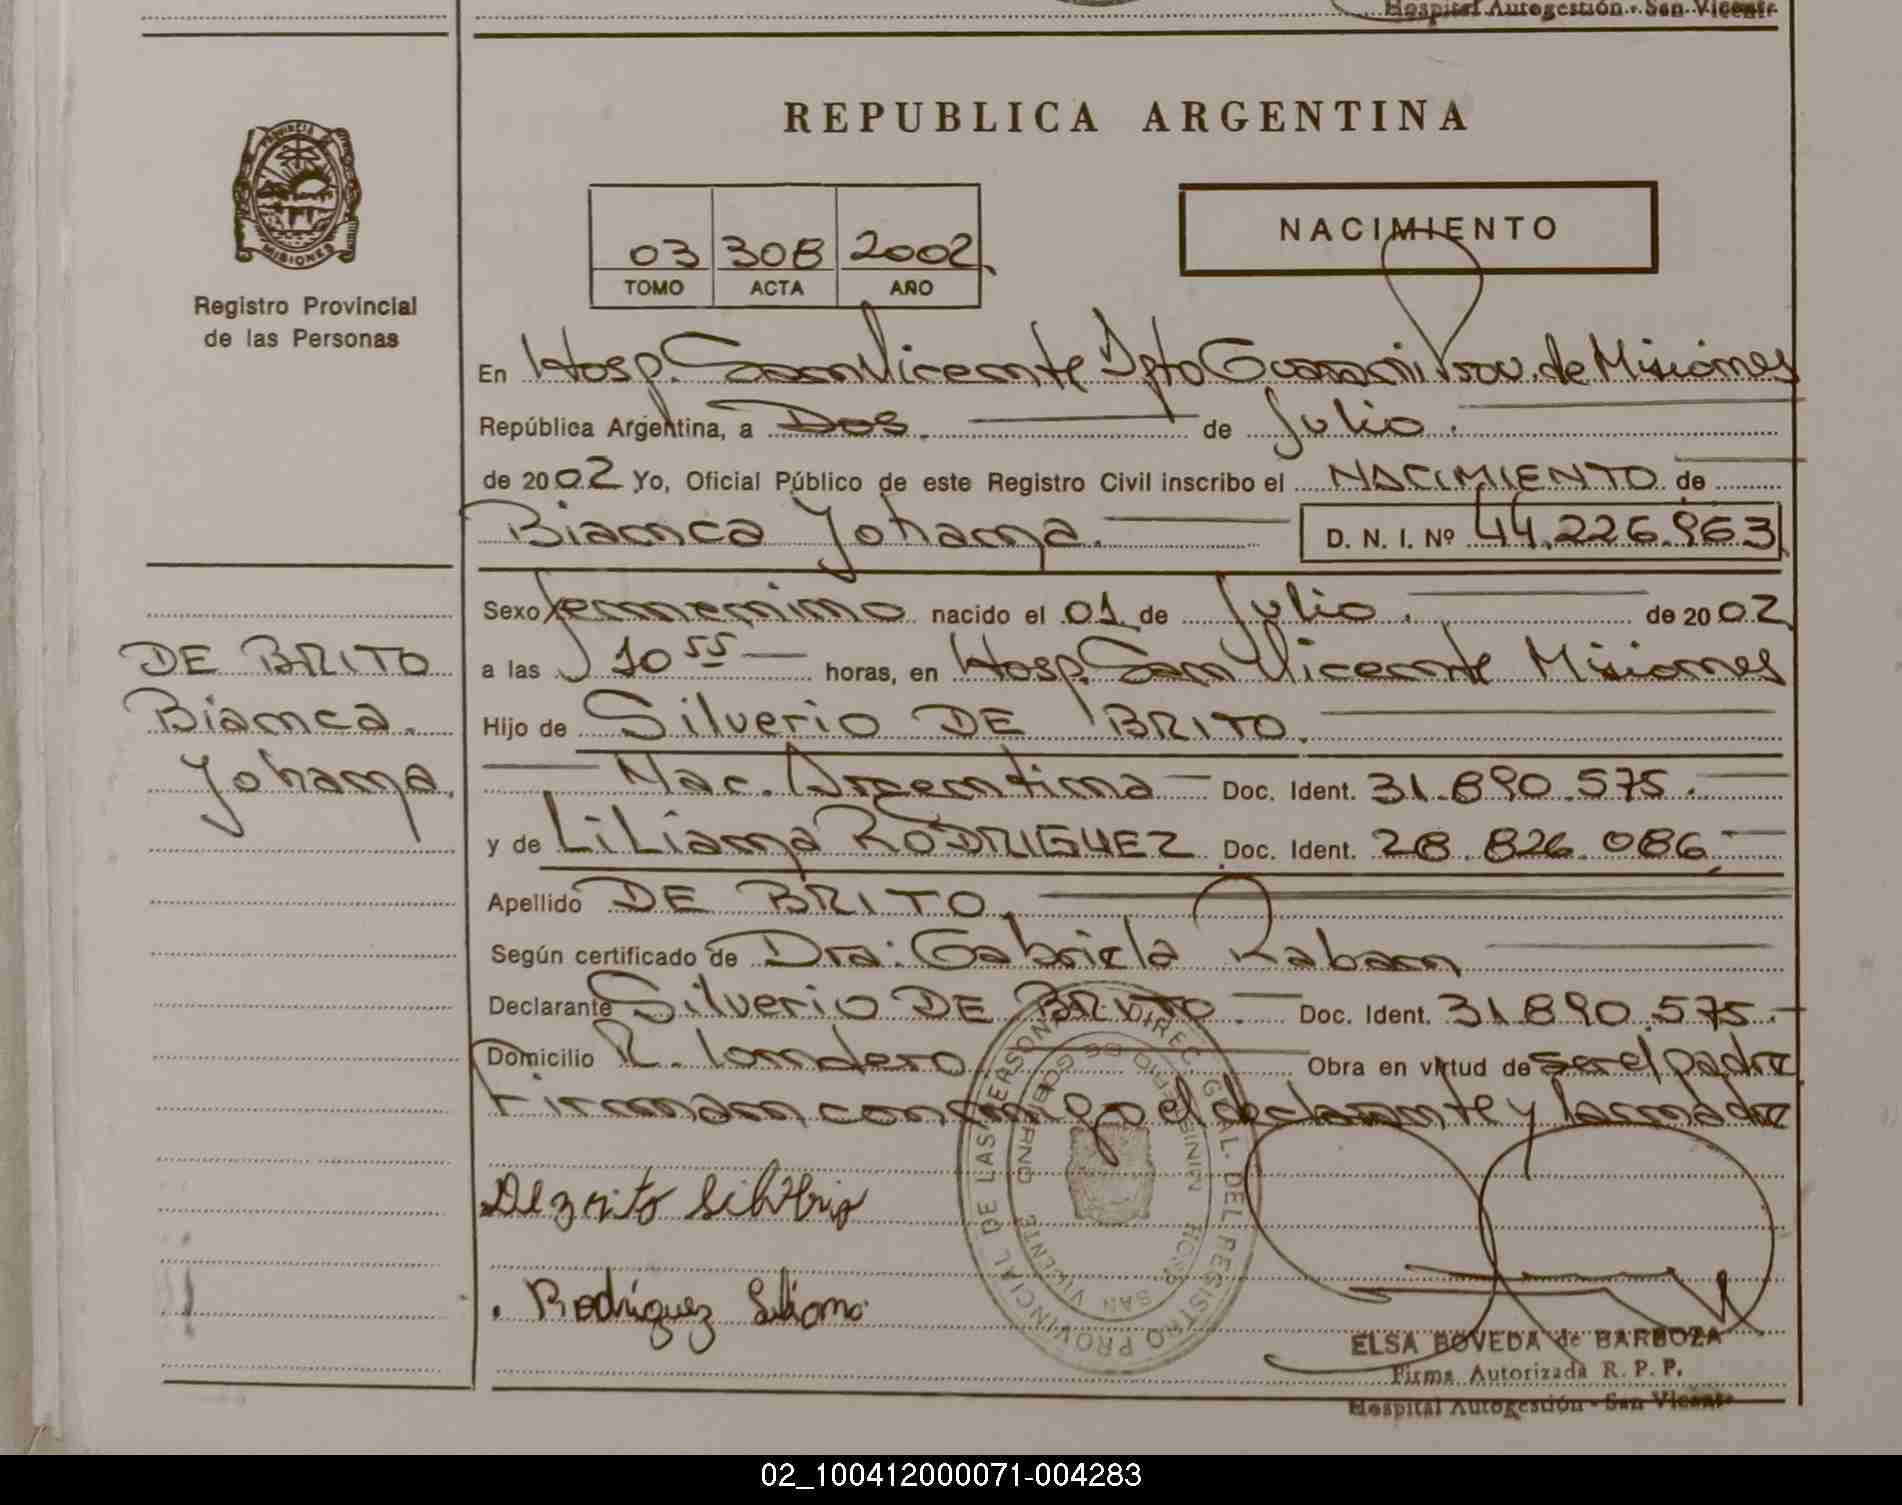 Hospital Autogestión - San Vicente
REPUBLICA ARGENTINA
PROVINCIA DE
MISIONES
Registro Provincial
de las Personas
03 308 2002
TOMO ACTA AÑO
NACIMIENTO
En Hosp. San Vicente Dpto Guarani Prov. de Misiones
República Argentina, a Dos. de Julio.
de 2002 Yo, Oficial Público de este Registro Civil inscribo el NACIMIENTO de
Bianca Yohana. D. N. I. Nº 44.226.963
Sexo femenino nacido el 01 de Julio. de 2002
a las 10 55 horas, en Hosp. San Vicente Misiones
Hijo de Silverio DE BRITO.
Nac. Argentina Doc. Ident. 31.890.575.
y de LiLiana RODRIGUEZ Doc. Ident. 28.826.086.
Apellido DE BRITO.
Según certificado de Dra: Gabriela Raban
Declarante Silverio DE BRITO. Doc. Ident. 31.890.575.
Domicilio R. Londero Obra en virtud de ser el padre
Firman conmigo el declarante y la madre
DE BRITO
Bianca.
Yohana.
De brito Silverio
Rodríguez Liliana
DIREC. GRAL. DEL REGISTRO PROVINCIAL DE LAS PERSONAS
MINISTERIO DE GOBIERNO
HOSP. SAN VICENTE
ELSA BOVEDA de BARBOZA
Firma Autorizada R. P. P.
Hospital Autogestión - San Vicente
02_100412000071-004283